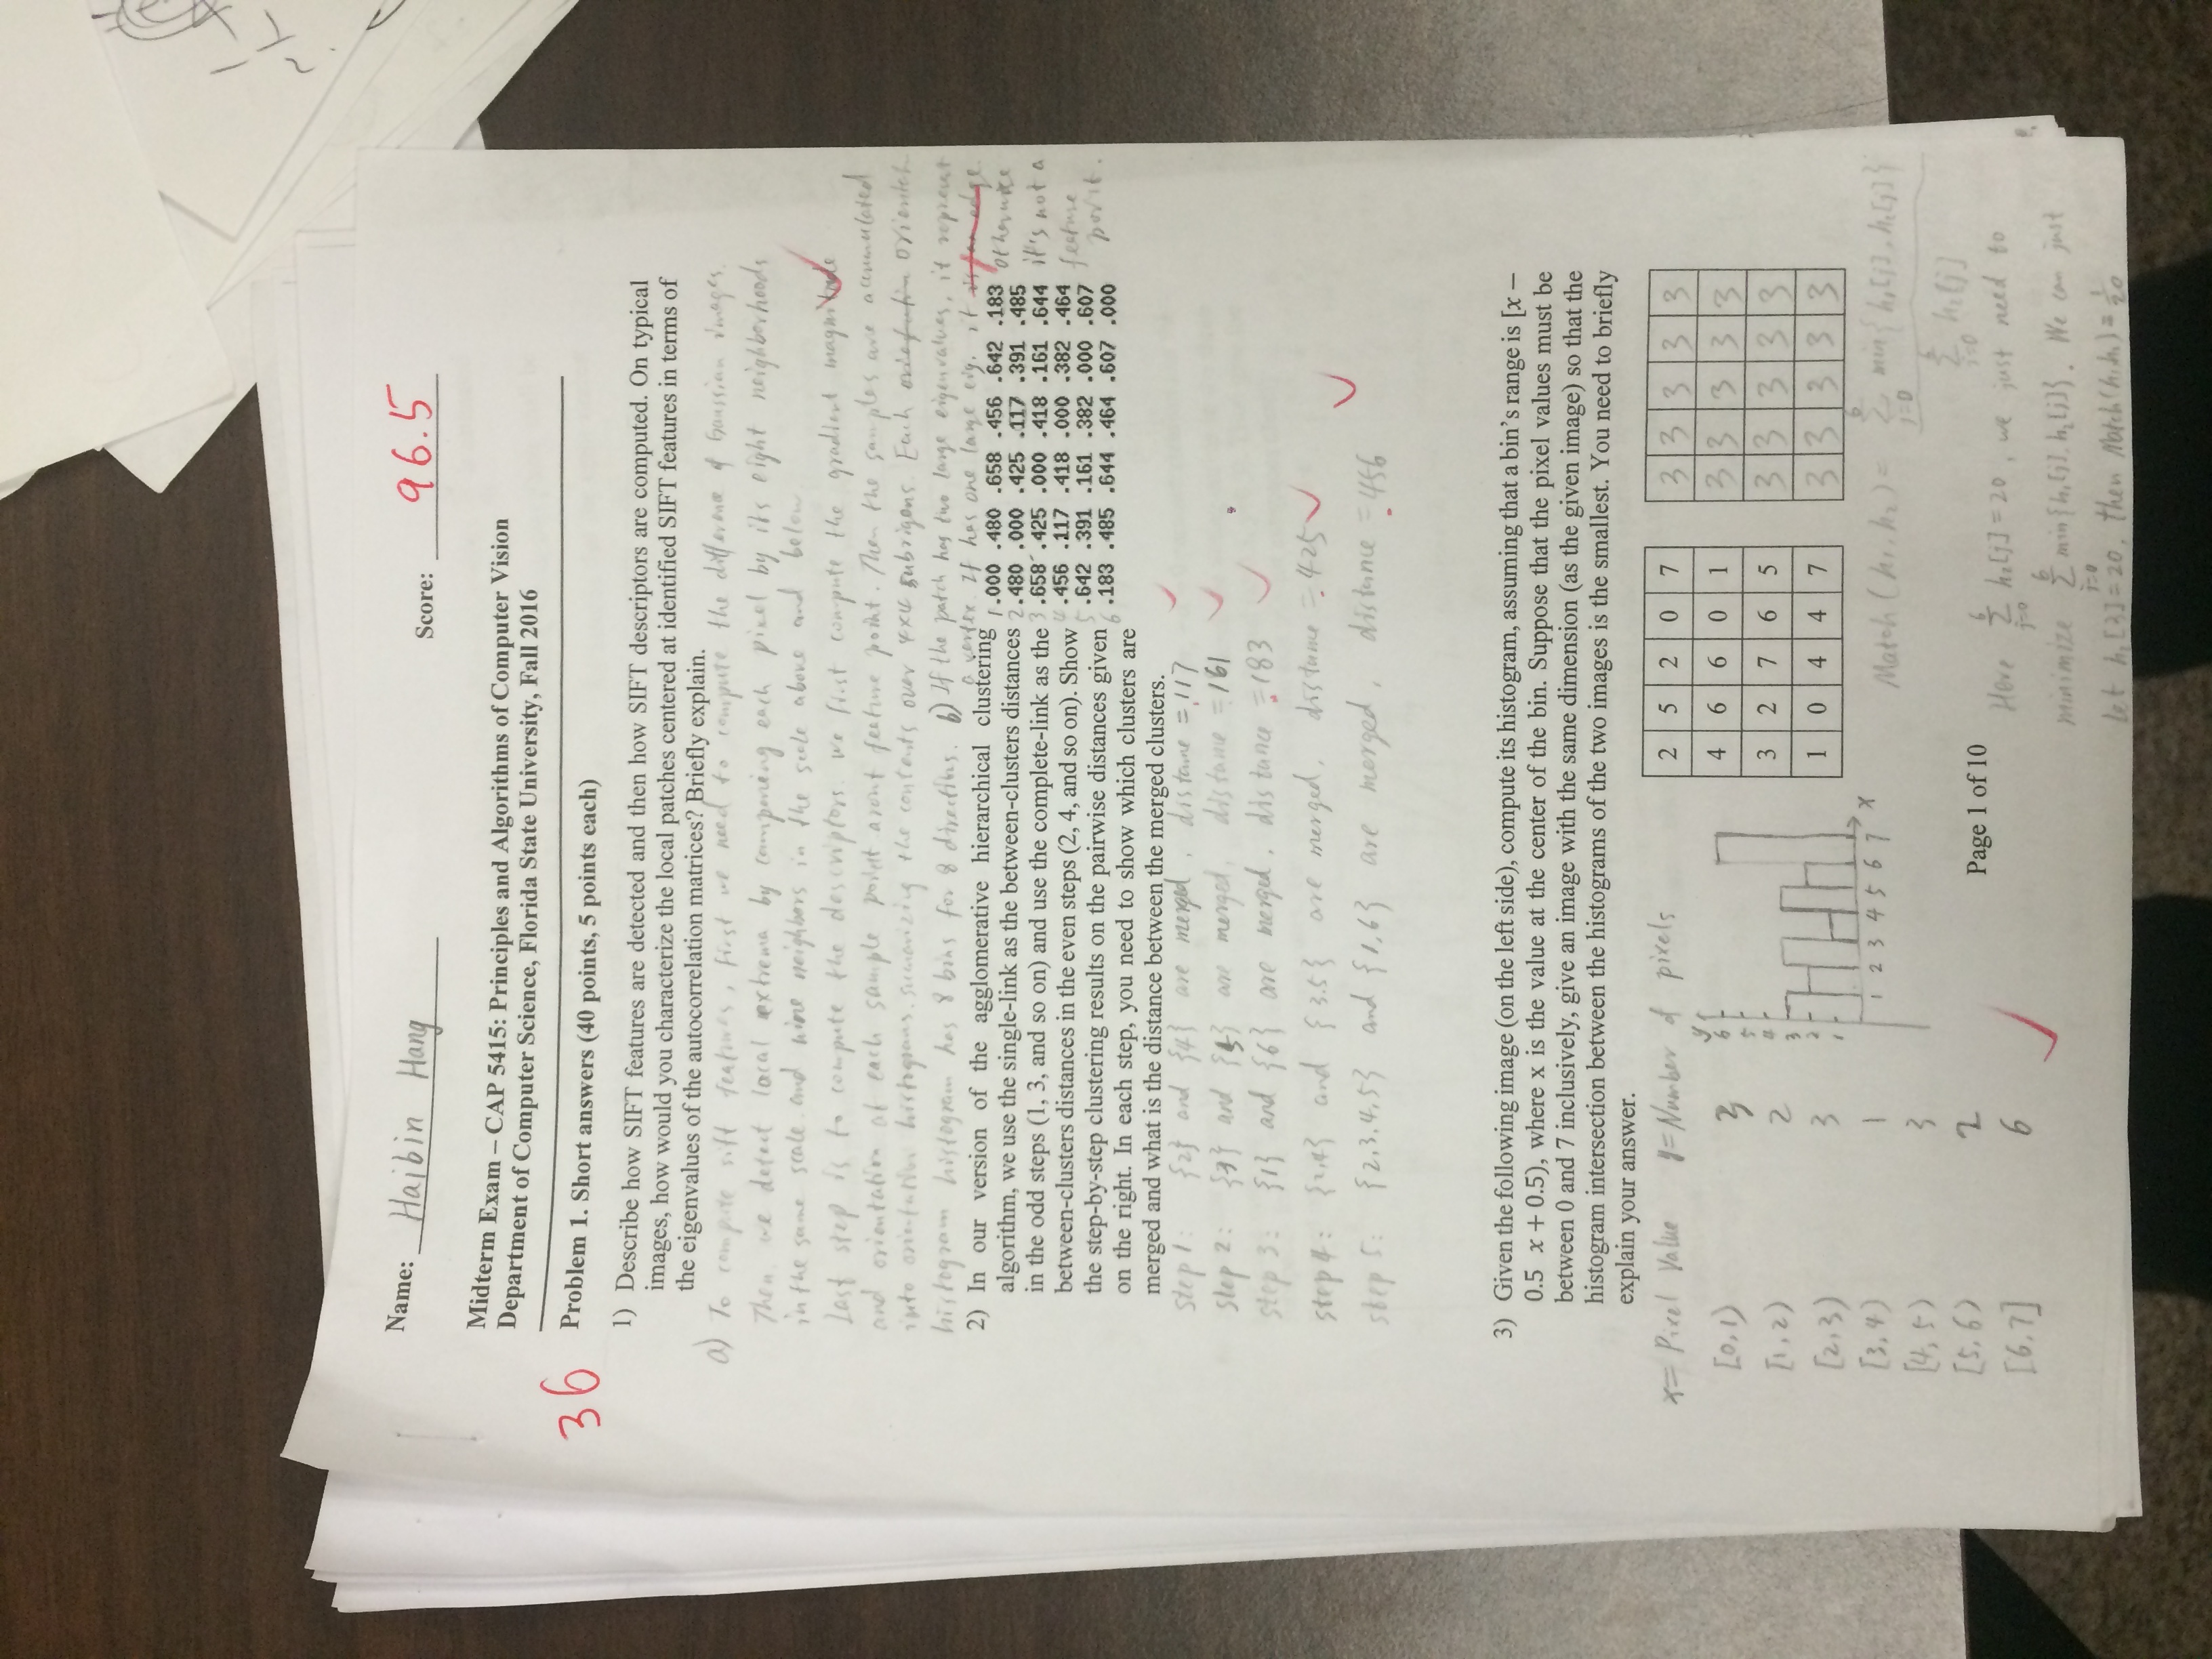 Name: Haibin Hang Score: 96.5
Midterm Exam – CAP 5415: Principles and Algorithms of Computer Vision
Department of Computer Science, Florida State University, Fall 2016
36
Problem 1. Short answers (40 points, 5 points each)
1) Describe how SIFT features are detected and then how SIFT descriptors are computed. On typical
images, how would you characterize the local patches centered at identified SIFT features in terms of
the eigenvalues of the autocorrelation matrices? Briefly explain.
a) To compute sift features, first we need to compute the difference of Gaussian images.
Then, we detect local extrema by comparing each pixel by its eight neighborhoods
in the same scale and nine neighbors in the scale above and below
Last step is to compute the descriptors. we first compute the gradient magnitude
and orientation at each sample point aront feature point. Then the samples are accumulated
into orientation histograms, sumarizing the contents over 4x4 subrigons. Each orientation
histogram histogram has 8 bins for 8 directions. b) If the patch has two large eigenvalues, it represent
a vertex. If has one large eig, it is an edge.
otherwise
it's not a
feature
point.
2) In our version of the agglomerative hierarchical clustering
algorithm, we use the single-link as the between-clusters distances
in the odd steps (1, 3, and so on) and use the complete-link as the
between-clusters distances in the even steps (2, 4, and so on). Show
the step-by-step clustering results on the pairwise distances given
on the right. In each step, you need to show which clusters are
merged and what is the distance between the merged clusters.
1 .000 .480 .658 .456 .642 .183
2 .480 .000 .425 .117 .391 .485
3 .658 .425 .000 .418 .161 .644
4 .456 .117 .418 .000 .382 .464
5 .642 .391 .161 .382 .000 .607
6 .183 .485 .644 .464 .607 .000
step 1: {2} and {4} are merged, distance = .117
step 2: {3} and {5} are merged, distance = .161
step 3: {1} and {6} are merged, distance = .183
step 4: {2,4} and {3,5} are merged, distance = .425
step 5: {2,3,4,5} and {1,6} are merged, distance = .456
3) Given the following image (on the left side), compute its histogram, assuming that a bin's range is [x –
0.5 x + 0.5), where x is the value at the center of the bin. Suppose that the pixel values must be
between 0 and 7 inclusively, give an image with the same dimension (as the given image) so that the
histogram intersection between the histograms of the two images is the smallest. You need to briefly
explain your answer.
x= Pixel Value y=Number of pixels
[0,1) 3
[1,2) 2
[2,3) 3
[3,4) 1
[4,5) 3
[5,6) 2
[6,7] 6
y
6
5
4
3
2
1
1 2 3 4 5 6 7 x
2 5 2 0 7
4 6 6 0 1
3 2 7 6 5
1 0 4 4 7
3 3 3 3 3
3 3 3 3 3
3 3 3 3 3
3 3 3 3 3
Match(h₁,h₂) = Σ_{j=0}^{6} min{h₁[j],h₂[j]} / Σ_{j=0}^{6} h₁[j]
Here Σ_{j=0}^{6} h₁[j]=20, we just need to
minimize Σ_{j=0}^{6} min{h₁[j],h₂[j]}. We can just
let h₂[3]=20, then Match(h₁,h₂)= 1/20
Page 1 of 10